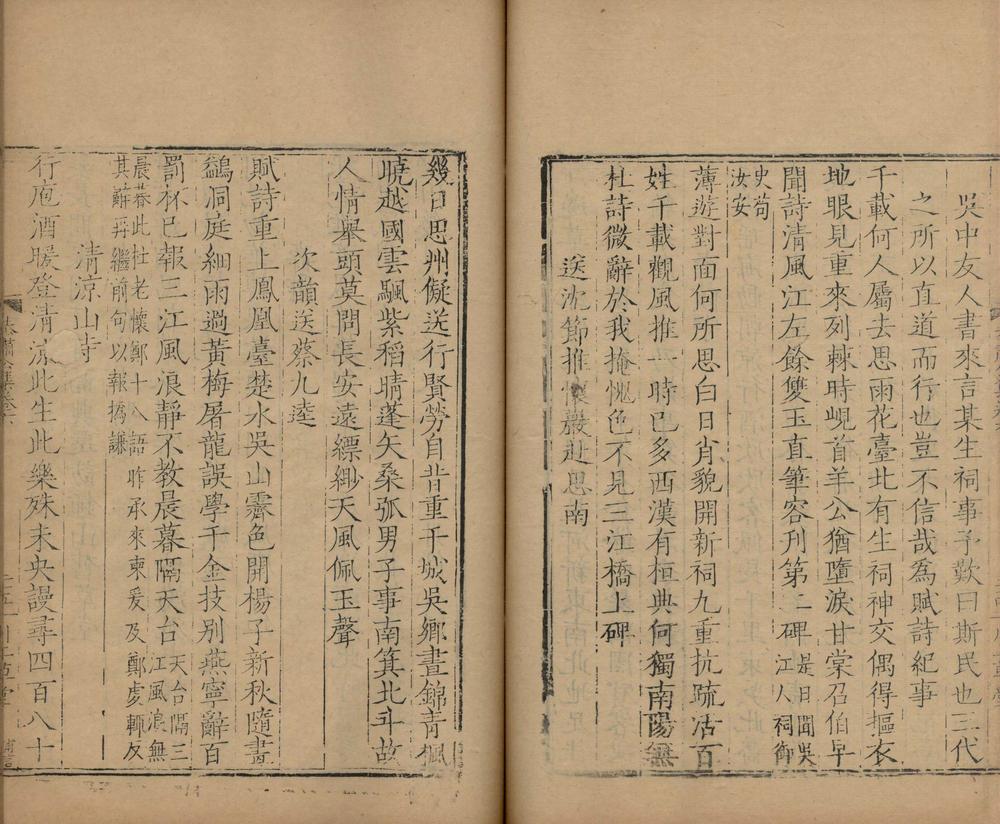 吳中友人書來言某生祠事予歎曰斯民也三代
之所以直道而行也豈不信哉為賦詩紀事
千載何人屬去思雨花臺北有生祠神交偶得摳衣
地眼見重來列棘時峴首羊公猶墮淚甘棠召伯早
聞詩清風江左餘雙玉直筆容刊第二碑是日聞吳江人祠御
史荀汝安
薄遊對面何所思白日肖貌開新祠九重抗疏活百
姓千載觀風推一時已多西漢有桓典何獨南陽無
杜詩微辭於我掩愧色不見三江橋上碑
送沈節推懷嚴赴思南
幾日思州儗送行賢勞自昔重干城吳鄉晝錦青楓
曉越國雲颿紫稻晴蓬矢桑弧男子事南箕北斗故
人情舉頭莫問長安遠縹緲天風佩玉聲
次韻送蔡九逵
賦詩重上鳳凰臺楚水吳山霽色開楊子新秋隨畫
鷁洞庭細雨過黃梅屠龍誤學千金技別燕寧辭百
罰杯已報三江風浪靜不教晨暮隔天台天台隔三江風浪無
晨暮此杜老懷鄭十八語昨承來柬爰及鄭虔輒反
其辭再繼前句以報撝謙
清涼山寺
行庖酒暖登清涼此生此樂殊未央謾尋四百八十